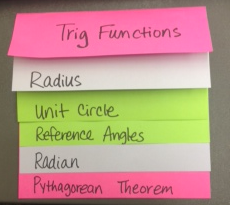 Trig Functions
Radius
Unit Circle
Reference Angles
Radian
Pythagorean Theorem